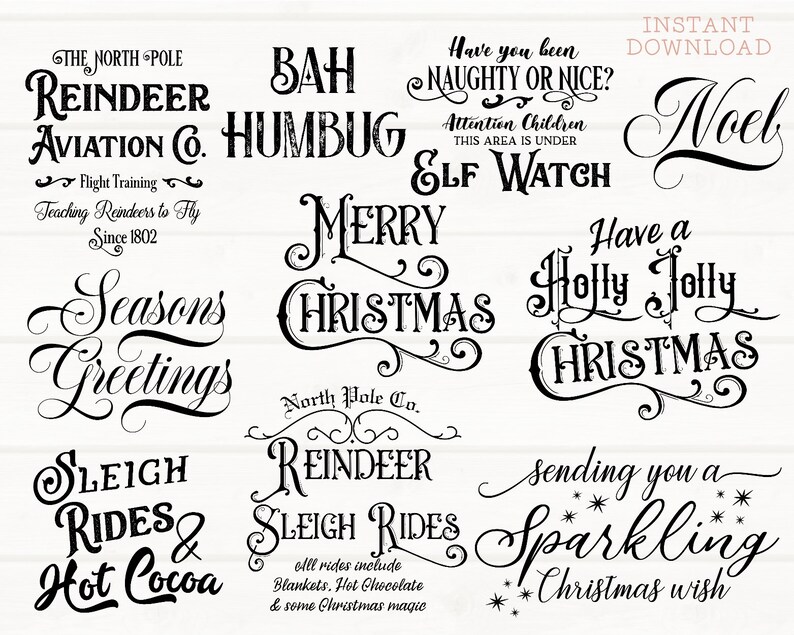 INSTANT
DOWNLOAD
THE NORTH POLE
REINDEER
AVIATION CO.
Flight Training
Teaching Reindeers to Fly
Since 1802
BAH
HUMBUG
Have you been
NAUGHTY OR NICE?
Attention Children
THIS AREA IS UNDER
ELF WATCH
Noel
MERRY
CHRISTMAS
Have a
Holly Jolly
CHRISTMAS
Seasons
Greetings
North Pole Co.
REINDEER
SLEIGH RIDES
All rides include
Blankets, Hot Chocolate
& some Christmas magic
SLEIGH
RIDES
&
Hot Cocoa
sending you a
Sparkling
Christmas wish